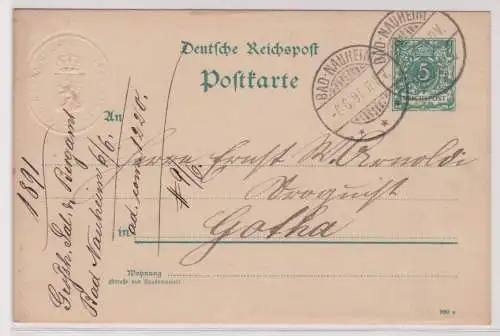 Deutsche Reichspost
Postkarte
BAD-NAUHEIM
-8.6.91.
BAD-NAUHEIM
5
REICHSPOST
An
Herrn Ernst W. Arnoldi
Droguist
in Gotha
Wohnung
(Straße und Hausnummer)
1891
Großh. Sal. &
Bad Nauheim 6/6.
ad. com. 1220.